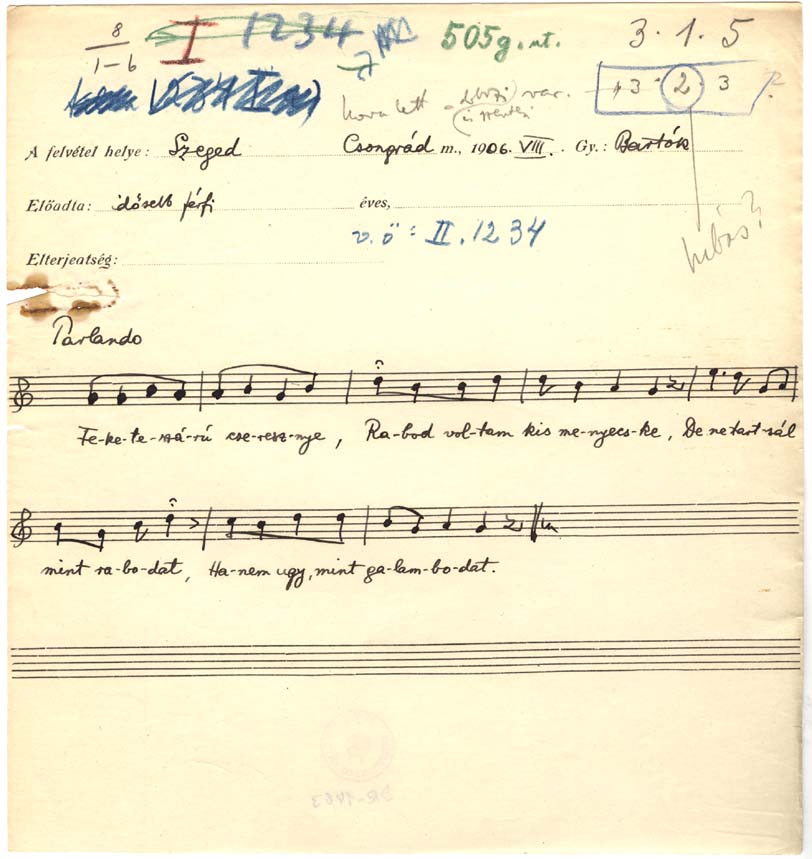 8
1-6
I 1234
505g. nt.
3. 1. 5
hova lett
var.
3 2 3 ?
A felvétel helye: Szeged Csongrád m., 1906. VIII. Gy.: Bartók
Előadta: idősebb férfi éves,
v. ö: II. 1234
hibás?
Elterjeatség:
Parlando
Fe-ke-te-szá-rú cse-resz-nye, Ra-bod vol-tam kis me-nyecs-ke, De ne tart-sál
mint ra-bo-dat, Ha-nem ugy, mint ga-lam-bo-dat.